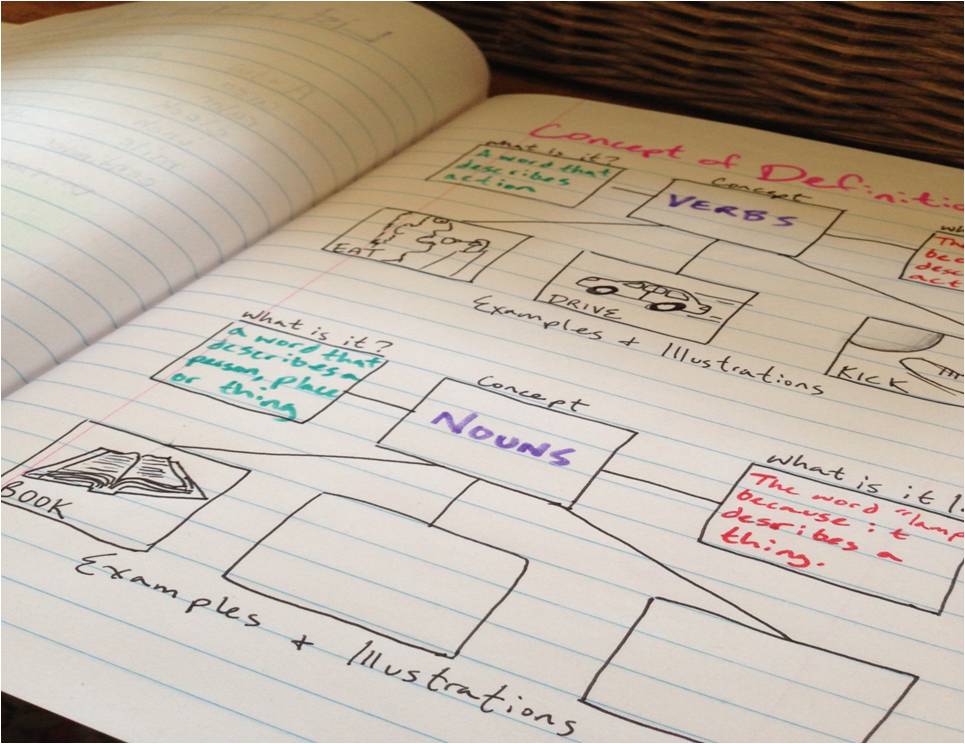 Concept of Definitio
What is it?
A word that
describes
action
Concept
VERBS
EAT
DRIVE
KICK
Examples & Illustrations
What is it?
A word that
describes a
person, place
or thing
Concept
NOUNS
What is it l
The word "lamp
because it
describes a
thing.
BOOK
Examples & Illustrations